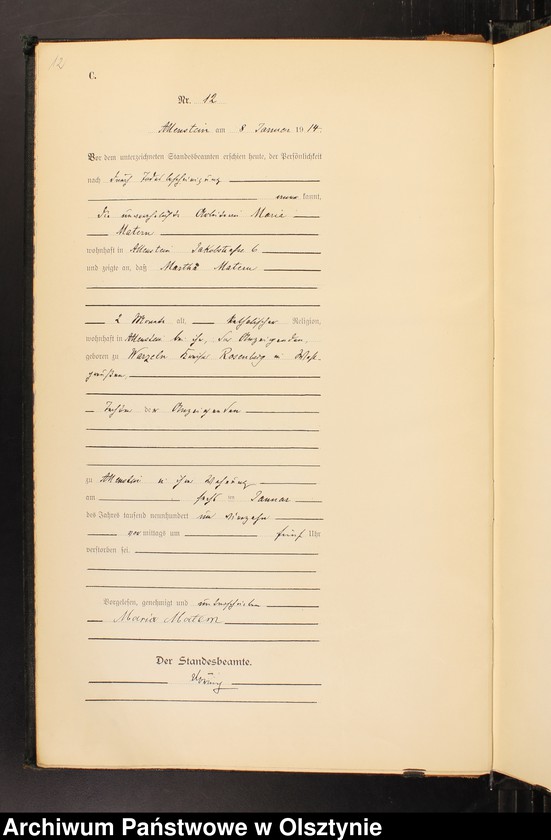 12
C.
Nr. 12
Allenstein am 8 Januar 1914.
Vor dem unterzeichneten Standesbeamten erschien heute, der Persönlichkeit
nach durch Todesbescheinigung
kannt,
die unverehelichte Arbeiterin Maria
Matern
wohnhaft in Allenstein Jakobstraße 6
und zeigte an, daß Martha Matern
2 Monate alt, katholischer Religion,
wohnhaft in Allenstein bei ihr, der Anzeigenden,
geboren zu Kreise Rosenberg in West-
preußen
Tochter der Anzeigenden
zu Allenstein in ihrer Wohnung
am sechsten Januar
des Jahres tausend neunhundert und vierzehn
vormittags um fünf Uhr
verstorben sei.
Vorgelesen, genehmigt und unterschrieben
Maria Matern
Der Standesbeamte.